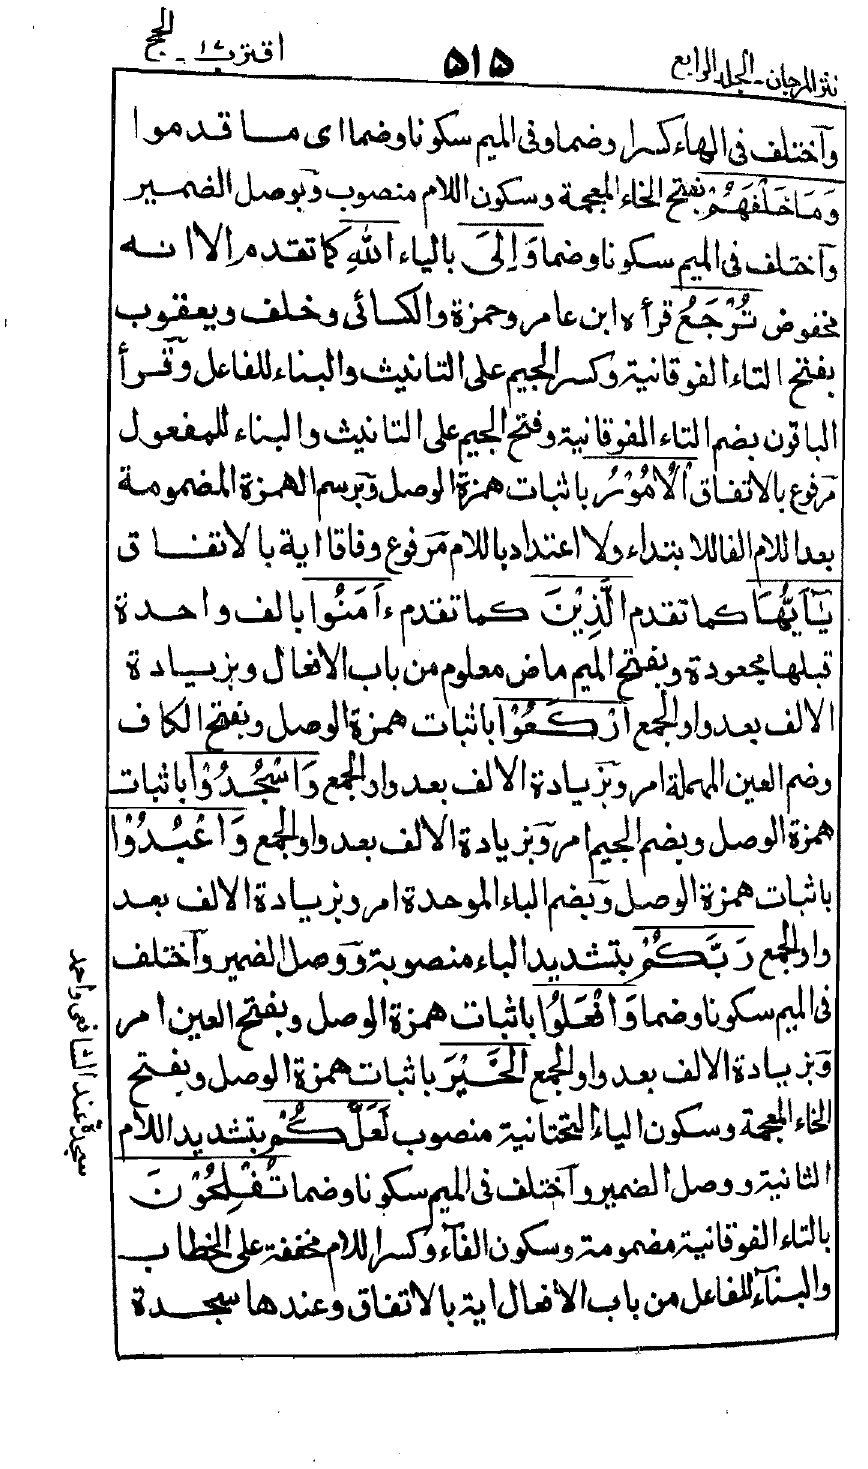 نثر المرجان - الجلد الرابع
٥١٥
اقترب ١٧ - الحج
وآختلف فى الهاء كسرا وضما وفى الميم سكونا وضما اى ما قدموا
وَمَا خَلْفَهُمْ بفتح الخاء المعجمة وسكون اللام منصوب وبوصل الضمير
وآختلف فى الميم سكونا وضما وَاِلَى بالياء اللهِ كما تقدم الا انه
مخفوض تُرْجَعُ قرأه ابن عامر وحمزة والكسائى وخلف ويعقوب
بفتح التاء الفوقانية وكسر الجيم على التانيث والبناء للفاعل وقرأ
الباقون بضم التاء الفوقانية وفتح الجيم على التانيث والبناء للمفعول
مرفوع بالاتفاق اْلاُمُوْرُ باثبات همزة الوصل وبرسم الهمزة المضمومة
بعد اللام الفا للابتداء ولا اعتداد باللام مرفوع وفاقا اية بالاتفاق
يٰٓاَيُّهَا كما تقدم الَّذِيْنَ كما تقدم ءاٰمَنُوا بالف واحدة
قبلها مجعودة وبفتح الميم ماض معلوم من باب الافعال وبزيادة
الالف بعد واو الجمع ارْكَعُوْا باثبات همزة الوصل وبفتح الكاف
وضم العين المهملة امر وبزيادة الالف بعد واو الجمع وَاسْجُدُوْا باثبات
همزة الوصل وبضم الجيم امر وبزيادة الالف بعد واو الجمع وَاعْبُدُوْا
باثبات همزة الوصل وبضم الباء الموحدة امر وبزيادة الالف بعد
واو الجمع رَبَّكُمْ بتشديد الباء منصوبة ووصل الضمير وآختلف
فى الميم سكونا وضما وَافْعَلُوا باثبات همزة الوصل وبفتح العين امر
وبزيادة الالف بعد واو الجمع الْخَيْرَ باثبات همزة الوصل وبفتح
الخاء المعجمة وسكون الياء التحتانية منصوب لَعَلَّكُمْ بتشديد اللام
الثانية ووصل الضمير وآختلف فى الميم سكونا وضما تُفْلِحُوْنَ
بالتاء الفوقانية مضمومة وسكون الفآء وكسر اللام مخففة على الخطاب
والبنآء للفاعل من باب الافعال اية بالاتفاق وعندها سجدة
سجدة عند الشافعى واحمد